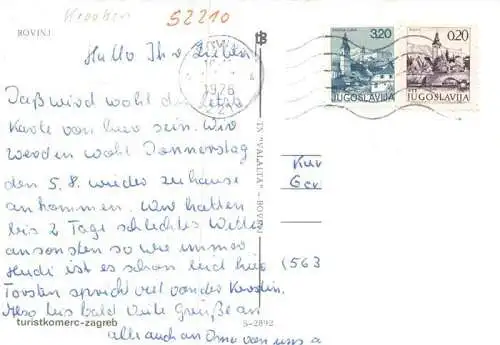 Kroatien 52210
ROVINJ
Hallo Ihr Lieben
1976
3,20
JUGOSLAVIJA
0,20
JUGOSLAVIJA
Das wird wohl die letzte
Karte von hier sein. Wir
werden wohl Donnerstag
den 5.8. wieder zuhause
ankommen. Wir hatten
bis 2 Tage schlechtes Wetter
ansonsten so wie immer
Heidi ist es schon leid hier
Torsten spricht viel von der Kerstin.
Also bis bald viele Grüße an
alle auch an Oma von uns a
TN "VALALTA" – ROVINJ
S-2892
turistkomerc-zagreb
(563